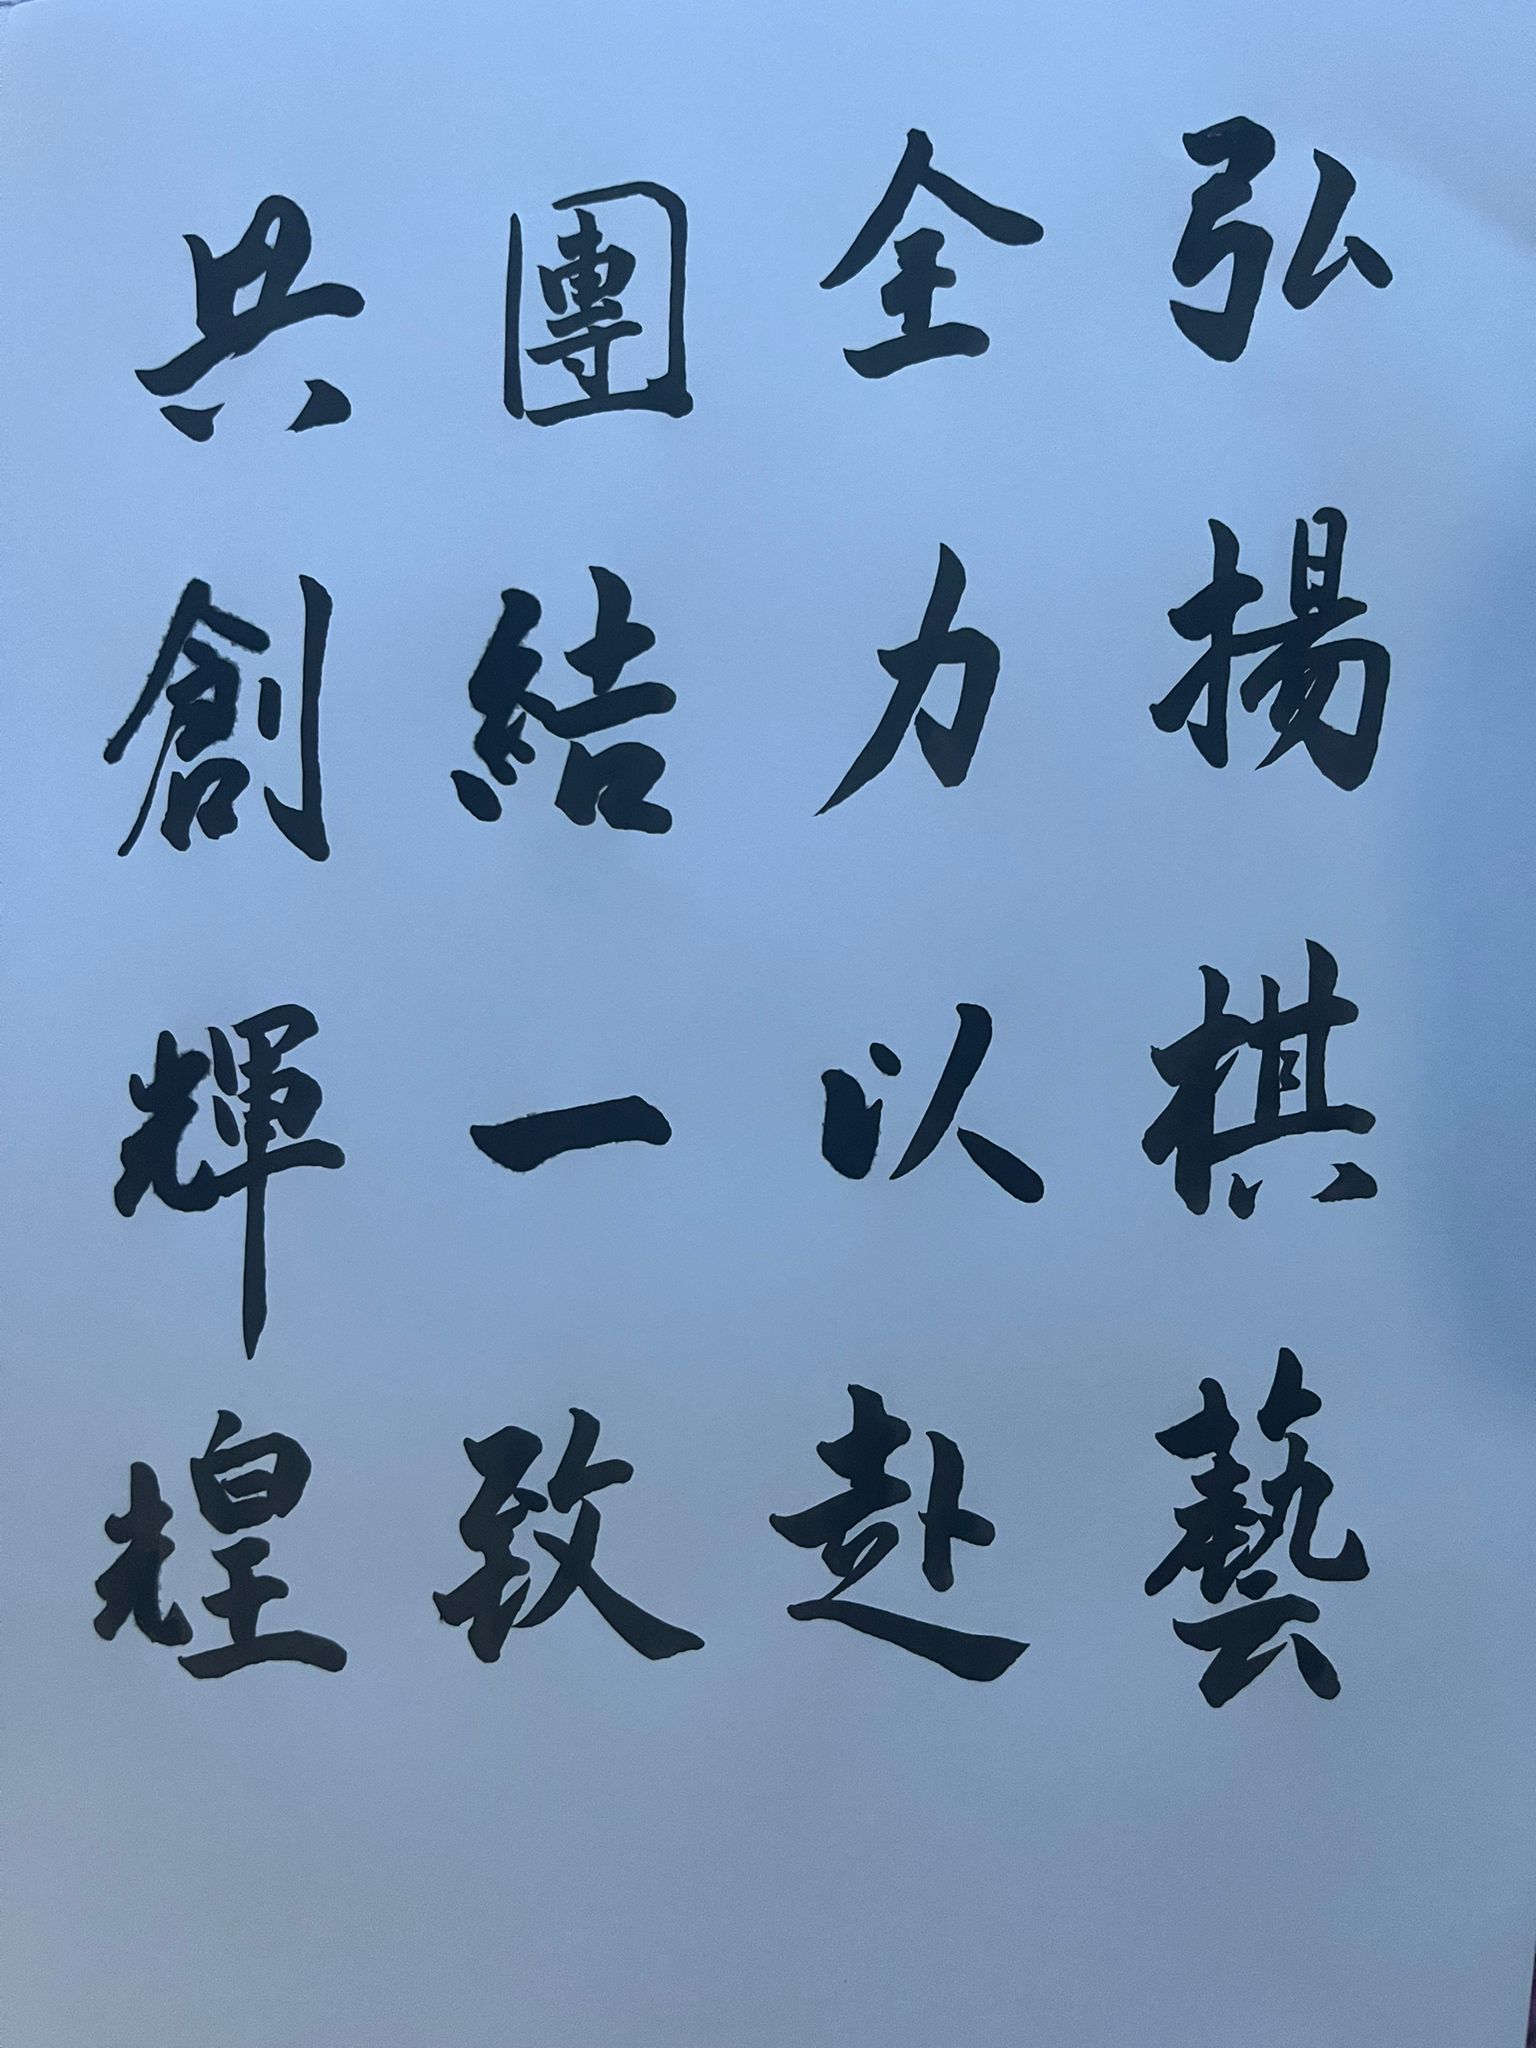 弘揚棋藝
全力以赴
團結一致
共創輝煌